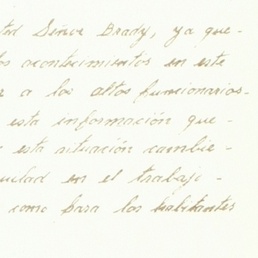 Señor Brady, ya que-
os acontecimientos en este
a los altos funcionarios-
esta información que-
esta situación cambie-
en el trabajo-
como para los habitantes